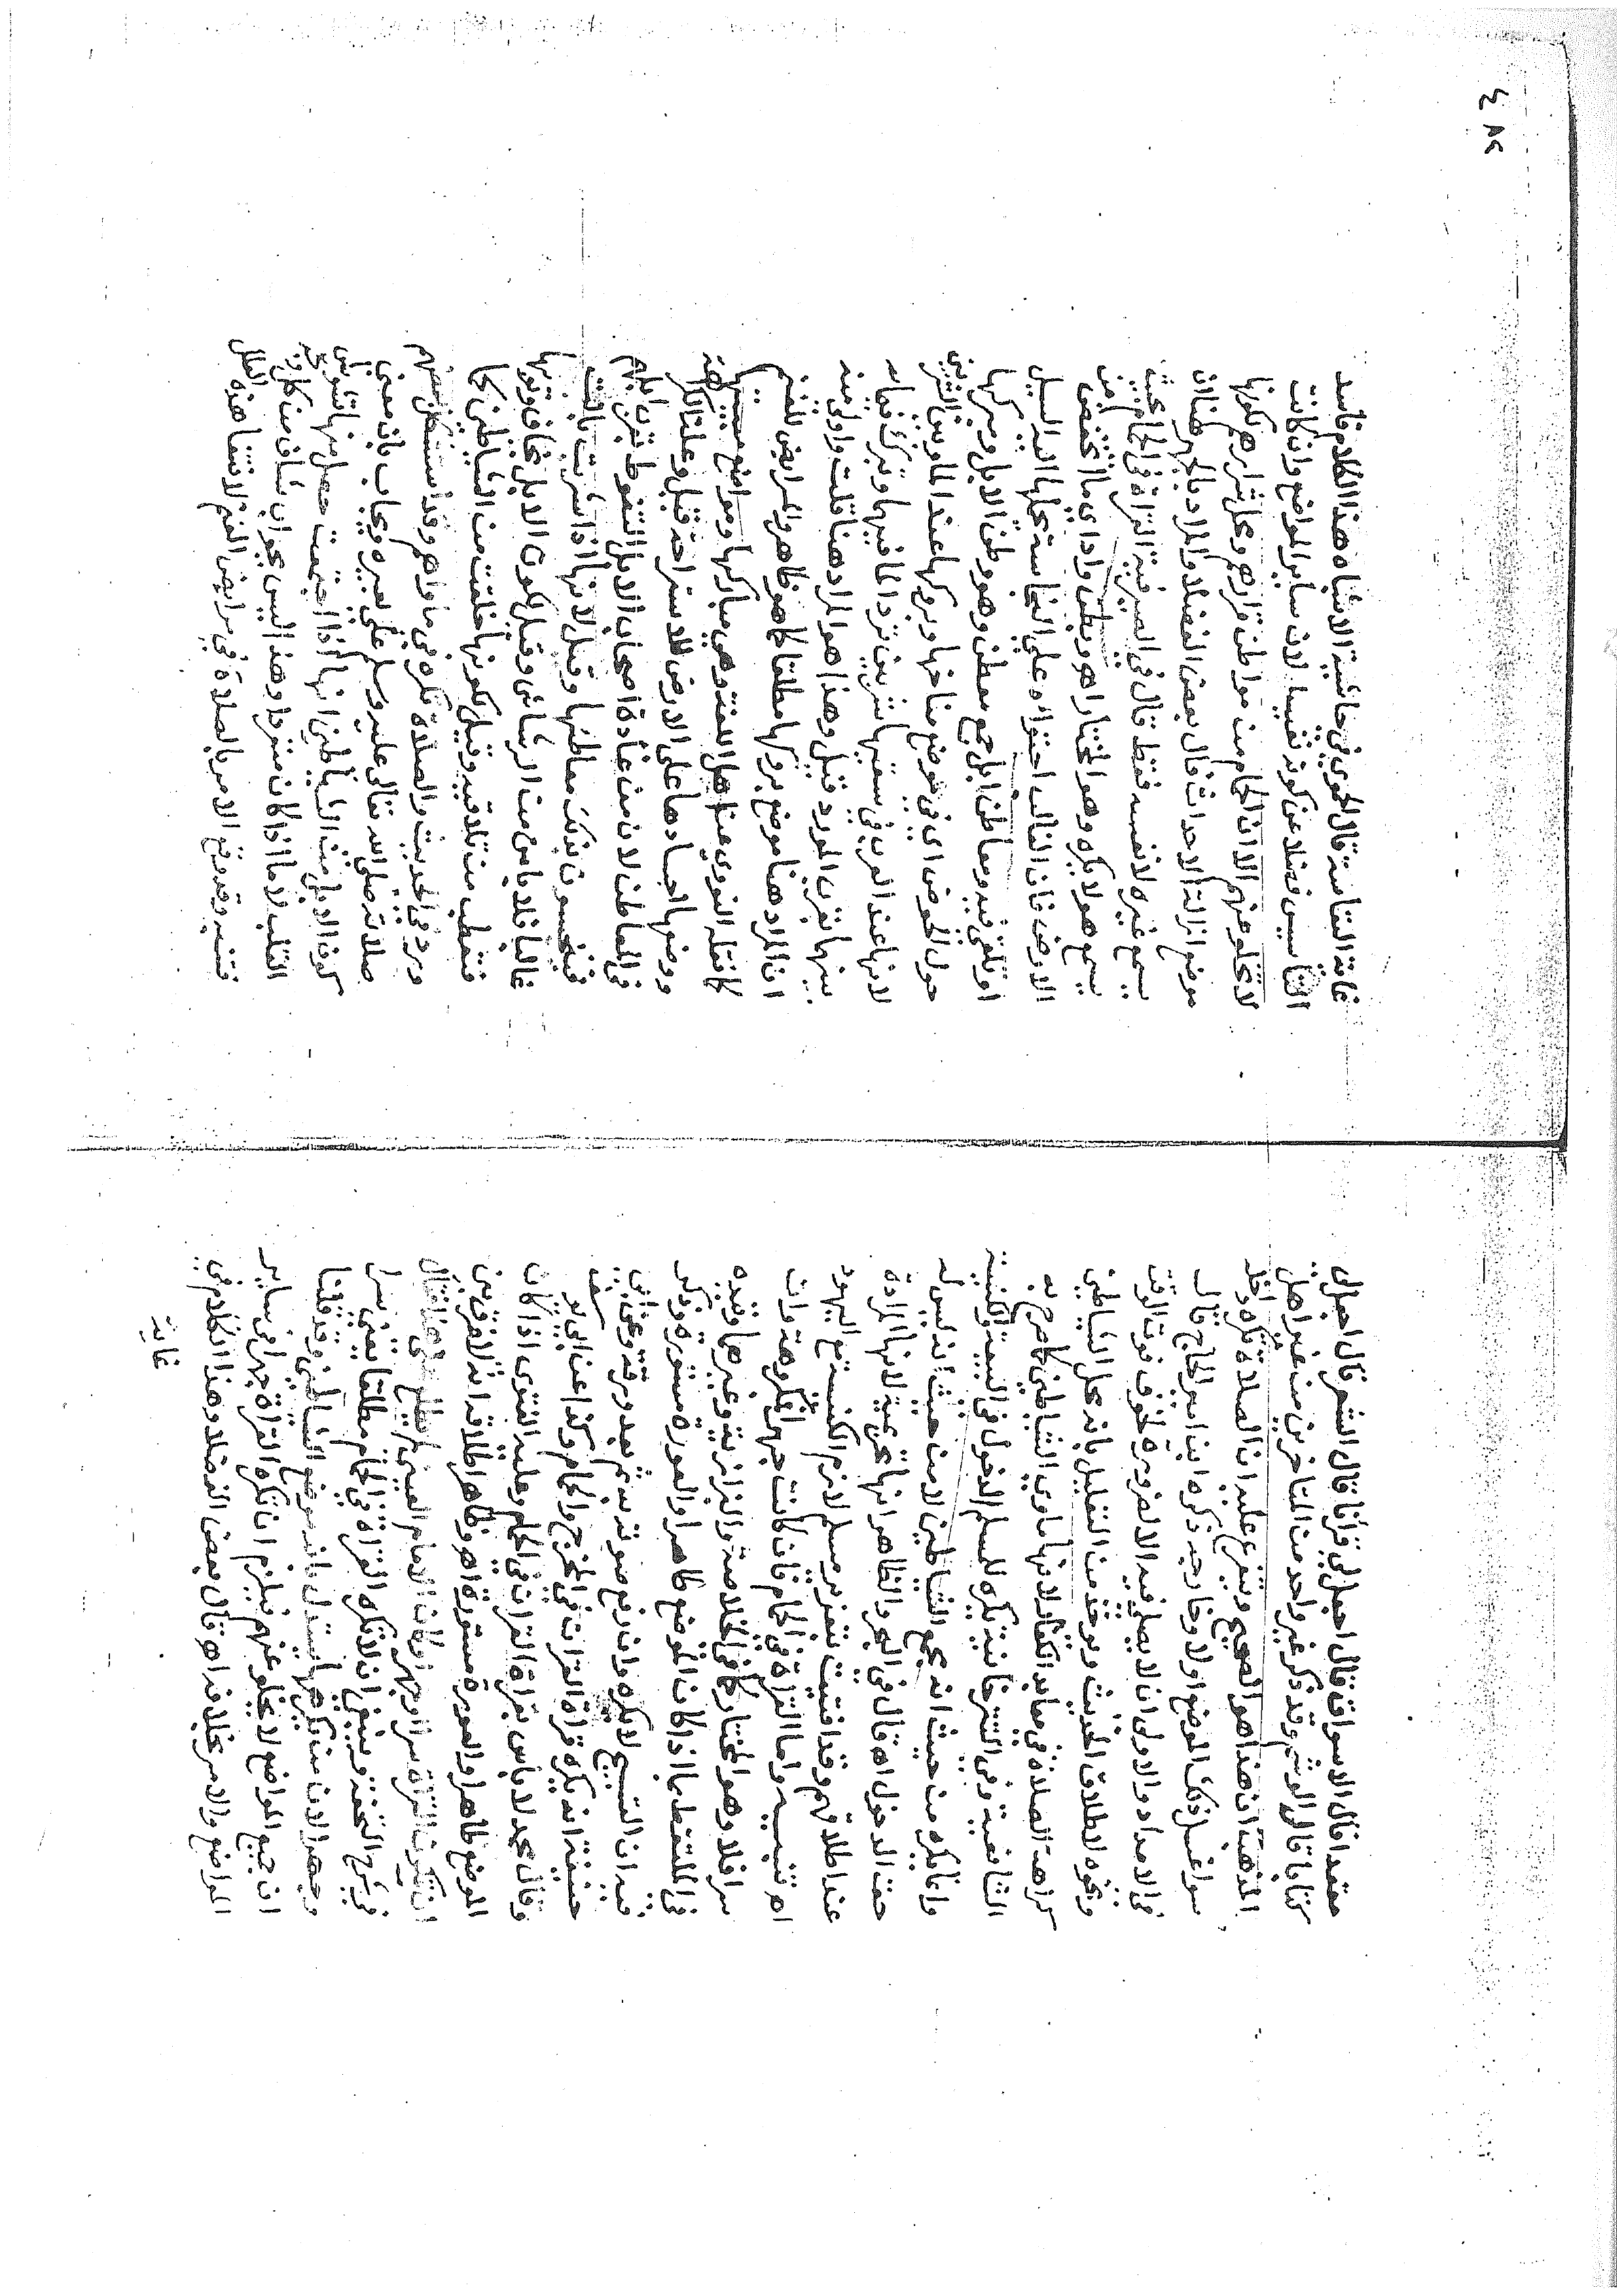 مقتد اقال الاسواق قال اجعل لي قرآنا قال الشعر قال اجعل لي
كتابا قال الوشم وقد ذكر غير واحد من المتاخرين من غير اهل
المذهب ان هذا هو الصحيح ويتفرع عليه ان الصلاة تكره داخل
سواغسل ذلك الموضع اولا وخارجه ذكره ابن امير الحاج قال
في الامداد والاولى ان لا يصلي فيه الا لضرورة كخوف فوت الوقت
ونحوه لاطلاق الحديث ويوخذ من التعليل بانه محل الشياطين
كراهة الصلاة في معابد الكفار لانها ماوى الشياطين كما صرح به
الشافعية وفي التترخانية يكره للمسلم الدخول في البيعة والكنيسة
وانما يكره من حيث انه مجمع الشياطين لا من حيث انه ليس له
حق الدخول اه قال في البحر والظاهر انها تحريمية لانها المرادة
عند اطلاقهم وقد افتيت بتعزير مسلم لازم الكنيسة مع اليهود
اه تنبيه واما القراة في الحمام فان كانت جهرا فمكروهة وان
سرا فلا وهو المختار كما في الخلاصة والبزازية وغيرهما وقيده
في الملتقط بما اذا كان الموضع طاهرا والعورة مستورة وذكر
فيه ان التسبيح لا يكره وان رفع صوته به ثم بعد ورقة وعن ابي
حنيفة انه يكره قراة القران في المخرج والحمام وكذا عن ابي يوسف
وقال محمد لا باس بقراة القران في الحمام وعليه الفتوى اذا كان
الموضع طاهرا والعورة مستورة اه وظاهر اطلاقه انه لا فرق بين
ان تكون القراة سرا او جهرا وكان الامام العيني لم يطلع على هذا فقال
في شرح التحفة وينبغي ان لا تكره القراة في الحمام مطلقا يعني سرا
وجهرا لان من يكرهها يستدل بانه موضع الشياطين وقد قلنا
ان جميع المواضع لا يخلو عنهم فيلزم ان تكره القراة جهرا في ساير
المواضع والامر بخلافه اه قال بعض الفضلا وهذا الكلام في
غاية
غاية المتانة قال الحموي في حاشية الاشباه هذا الكلام فاسد
التاسيس فضلا عن كونه نفيسا لان ساير المواضع وان كانت
لا تخلو عنهم الا ان الحمام من مواطن قرارهم ومحل قرارهم بكونها
موضع ازالة الاحداث قال بعض الفضلا والمراد بالجهر هنا ان
يسمع غيره لا نفسه فقط قال في الصيرفية القراة في الحمام بحيث
يسمع هو لا يكره وهو المختار اه وبطن واد اي ما انخفض من
الارض فان الغالب احتواؤه على النجاسة يحملها اليه السيل
او تلقى فيه ومعاطن ابل جمع معطن وهو وطن الابل ومبركها
حول الحوض اي في موضع مناخها وبروكها عند الماء بين الشربين
لانها عند العرب في سقيها شربين ترد الماء فيها وتبرك قيامه
بينها بقرب المورد قيل وهذا هو المراد هنا قلت واولى منه
ان المراد هنا موضع بروكها مطلقا كما هو ظاهر والمرابض للغنم
كما نقله النووي عن اهل اللغة وهي مباركها ومواضع مبيتها
ووضعها اجسادها على الارض للاستراحة قيل وعلة الكراهة
في المعاطن لان من عادة اصحاب الابل التغوط بقرب ابلهم
فينجسون بذلك معاطنها وقيل لانها اذا شربت بالت
غالبا فلا يامن من الرشاش وقيل لكون الابل يخاف وثوبها
فتعطب من تلاقيه وقيل بكونها خلقت من الشياطين كما
ورد في الحديث والصلاة تكره في ماواهم وقد استشكل بعضهم
صلاته صلى الله تعالى عليه وسلم على بعيره ويجاب بان معنى
كون الابل من الشياطين انها اذا اجتمعت حصل منها تشويش
القلب لا ما اذا كان منفردا وهذا ليس بجواب شاف من كل وجه
فتنبه وقد وقع الامر بالصلاة في مرابض الغنم لانتفا هذه العلل